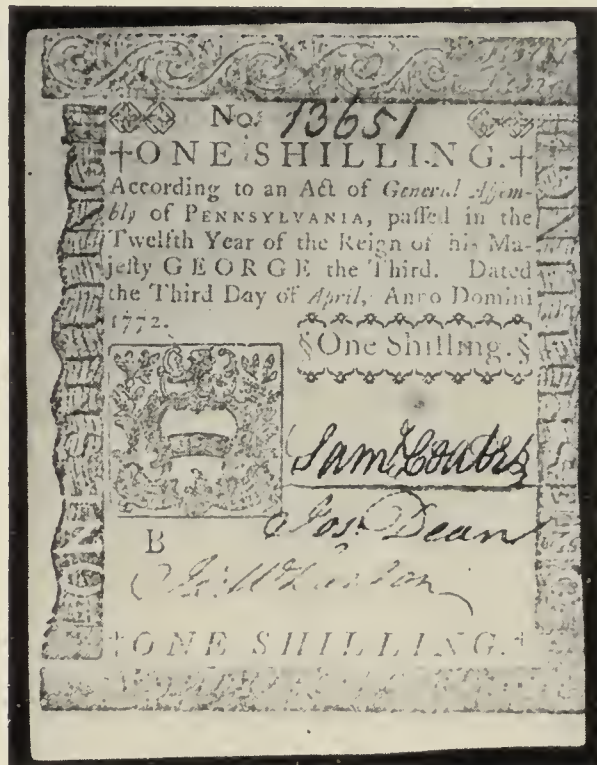 No. 13651
†ONE SHILLING.†
According to an Act of General Assem-
bly of PENNSYLVANIA, passed in the
Twelfth Year of the Reign of his Ma-
jesty GEORGE the Third. Dated
the Third Day of April, Anno Domini
1772.
§One Shilling.§
Saml Coates
Jos. Dean
B
†ONE SHILLING.†